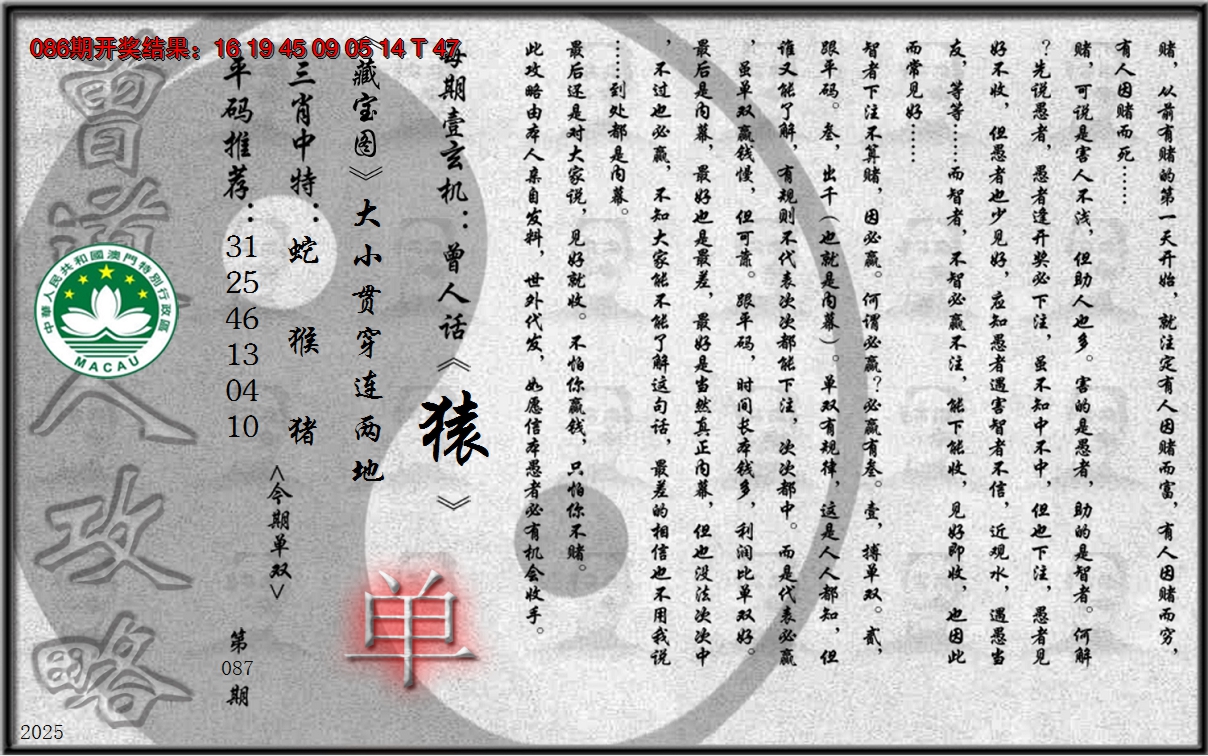 086期开奖结果：16 19 45 09 05 14 T 47
赌，从前有赌的第一天开始，就注定有人因赌而富，有人因赌而穷，
有人因赌而死……
赌，可说是害人不浅，但助人也多。害的是愚者，助的是智者。何解
？先说愚者，愚者逢开奖必下注，虽不知中不中，但也下注，愚者见
好不收，但愚者也少见好，应知愚者遇害智者不信，近观水，遇愚当
友，等等……而智者，不智必赢不注，能下能收，见好即收，也因此
而常见好……
智者下注不算赌，因必赢。何谓必赢？必赢有叁。壹，搏单双。贰，
跟平码。叁，出千（也就是内幕）。单双有规律，这是人人都知，但
谁又能了解，有规则不代表次次都能下注，次次都中。而是代表必赢
，虽单双赢钱慢，但可靠。跟平码，时间长本钱多，利润比单双好。
最后是内幕，最好也是最差，最好是当然真正内幕，但也没法次次中
，不过也必赢，不知大家能不能了解这句话，最差的相信也不用我说
……到处都是内幕。
最后还是对大家说，见好就收。不怕你赢钱，只怕你不赌。
此攻略由本人亲自发料，世外代发，如愿信本愚者必有机会收手。
每期壹玄机：曾人话《猿》
《藏宝图》大小贯穿连两地
单
三肖中特：蛇 猴 猪
<今期单双>
平码推荐：31 25 46 13 04 10
第087期
曾道人攻略
中華人民共和國澳門特別行政區
MACAU
2025